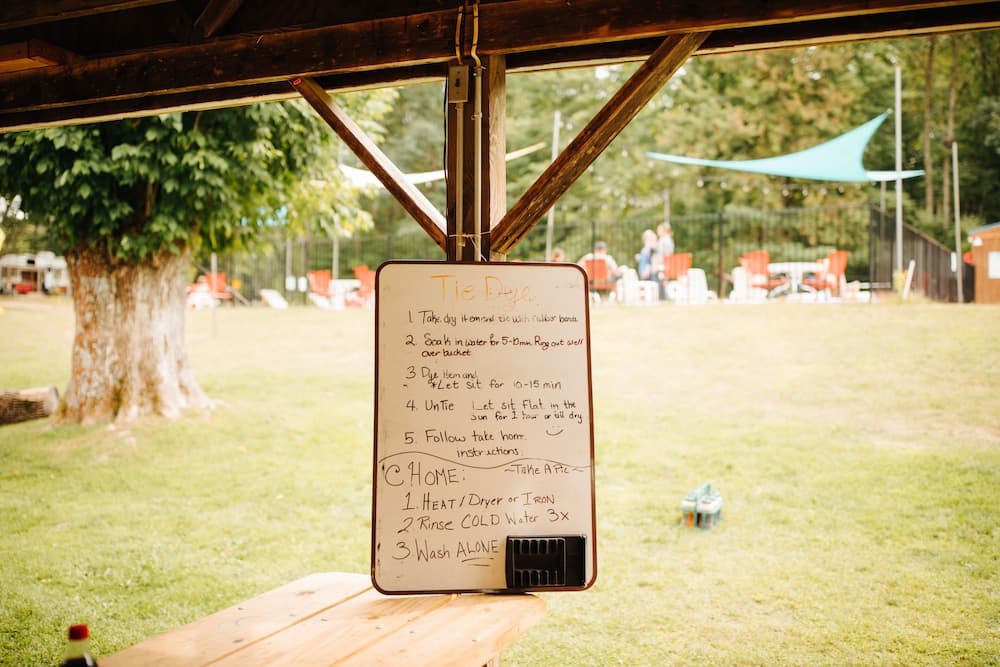 Tie Dye
1. Take dry item and tie with rubber bands
2. Soak in water for 5-10min Ring out well
over bucket
3 Dye item and
*Let sit for 10-15 min
4. UnTie Let sit flat in the
Sun for 1 hour or till dry
5. Follow take home
instructions
@ HOME: ~Take A Pic~
1. HEAT/Dryer or IRON
2 Rinse COLD Water 3x
3. Wash ALONE